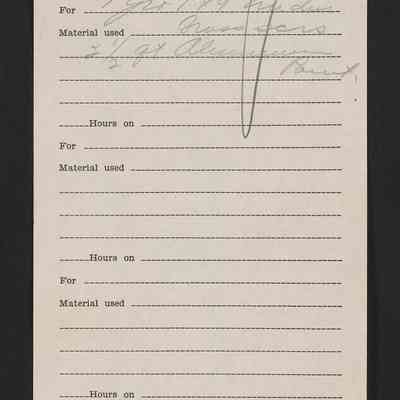 For
Material used
2 1/2 qt Aluminum
Paint
Hours on
For
Material used
Hours on
For
Material used
Hours on